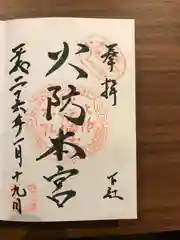 奉拝
下社
火防本宮
平成二十六年一月十九日